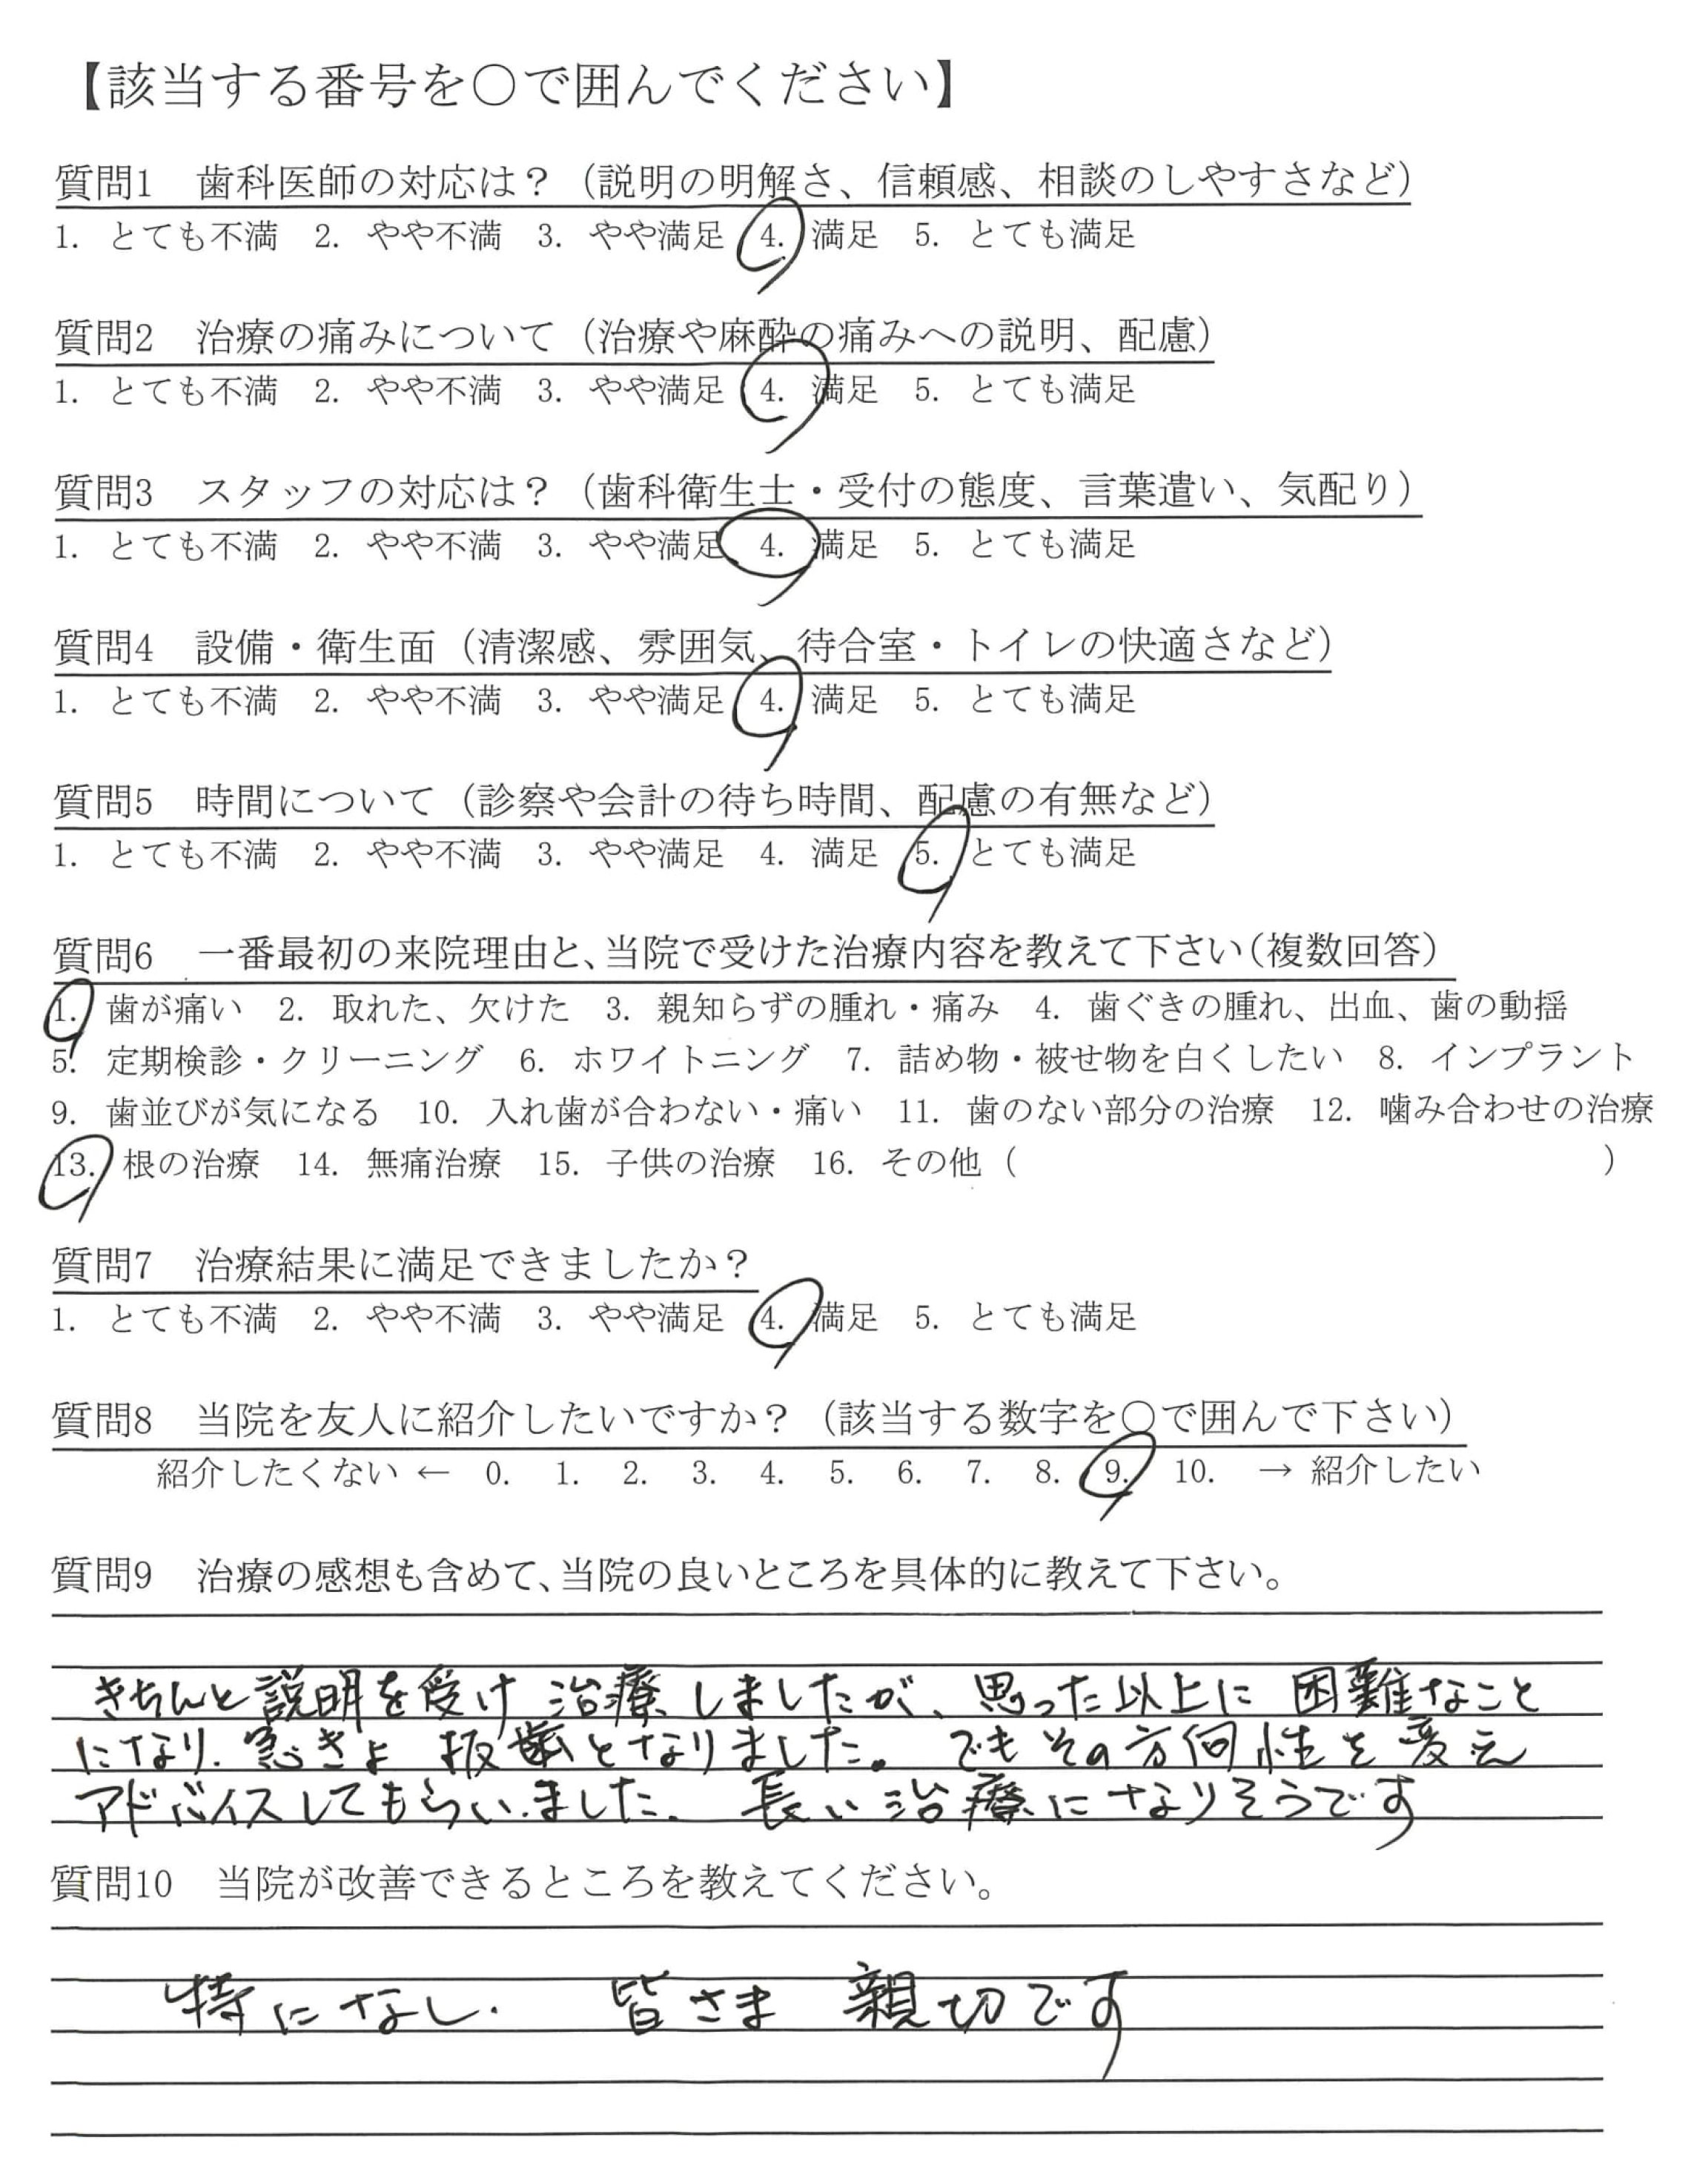 【該当する番号を○で囲んでください】
質問1　歯科医師の対応は？（説明の明解さ、信頼感、相談のしやすさなど）
1. とても不満　2. やや不満　3. やや満足　4. 満足　5. とても満足
質問2　治療の痛みについて（治療や麻酔の痛みへの説明、配慮）
1. とても不満　2. やや不満　3. やや満足　4. 満足　5. とても満足
質問3　スタッフの対応は？（歯科衛生士・受付の態度、言葉遣い、気配り）
1. とても不満　2. やや不満　3. やや満足　4. 満足　5. とても満足
質問4　設備・衛生面（清潔感、雰囲気、待合室・トイレの快適さなど）
1. とても不満　2. やや不満　3. やや満足　4. 満足　5. とても満足
質問5　時間について（診察や会計の待ち時間、配慮の有無など）
1. とても不満　2. やや不満　3. やや満足　4. 満足　5. とても満足
質問6　一番最初の来院理由と、当院で受けた治療内容を教えて下さい（複数回答）
1. 歯が痛い　2. 取れた、欠けた　3. 親知らずの腫れ・痛み　4. 歯ぐきの腫れ、出血、歯の動揺
5. 定期検診・クリーニング　6. ホワイトニング　7. 詰め物・被せ物を白くしたい　8. インプラント
9. 歯並びが気になる　10. 入れ歯が合わない・痛い　11. 歯のない部分の治療　12. 噛み合わせの治療
13. 根の治療　14. 無痛治療　15. 子供の治療　16. その他（　　　　　　　　　　）
質問7　治療結果に満足できましたか？
1. とても不満　2. やや不満　3. やや満足　4. 満足　5. とても満足
質問8　当院を友人に紹介したいですか？（該当する数字を○で囲んで下さい）
紹介したくない ← 0. 1. 2. 3. 4. 5. 6. 7. 8. 9. 10. → 紹介したい
質問9　治療の感想も含めて、当院の良いところを具体的に教えて下さい。
きちんと説明を受け 治療しましたが、思った以上に 困難なこと
になり、急きょ 抜歯となりました。でもその方向性を変え
アドバイスしてもらいました。 長い治療になりそうです
質問10　当院が改善できるところを教えてください。
特になし. 皆さま 親切です